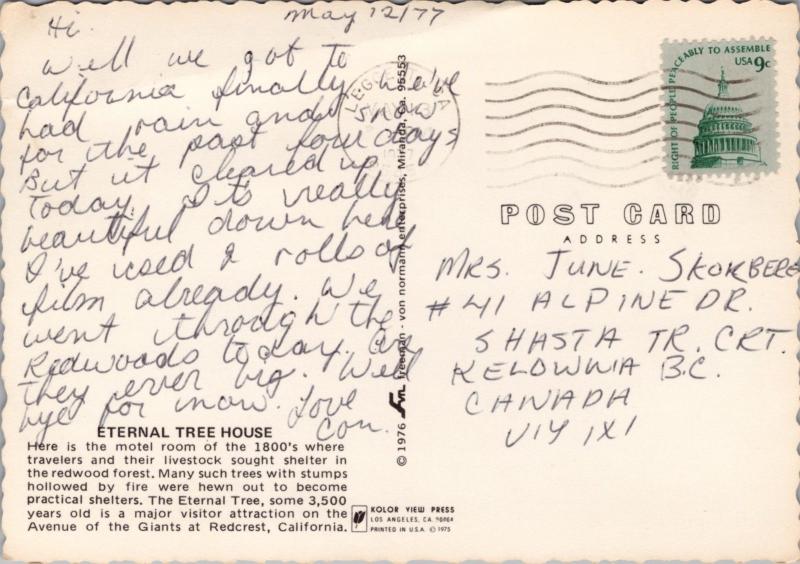 May 12/77
Hi.
Well we got to
California finally we've
had rain and snow
for the past four days
But it cleared up
today. It's really
beautiful down here
I've used 2 rolls of
film already. We
went through the
Redwoods today. Are
they ever big. Well
bye for now. Love
Con.
ETERNAL TREE HOUSE
Here is the motel room of the 1800's where
travelers and their livestock sought shelter in
the redwood forest. Many such trees with stumps
hollowed by fire were hewn out to become
practical shelters. The Eternal Tree, some 3,500
years old is a major visitor attraction on the
Avenue of the Giants at Redcrest, California.
© 1976 freeman - von normann enterprises, Miranda, Ca. 95553
KOLOR VIEW PRESS
LOS ANGELES, CA. 90064
PRINTED IN U.S.A. © 1975
RIGHT OF PEOPLE PEACEABLY TO ASSEMBLE
USA 9c
POST CARD
ADDRESS
MRS. JUNE. SKORBERG
#41 ALPINE DR.
SHASTA TR. CRT.
KELOWNA B.C.
CANADA
V1Y 1X1